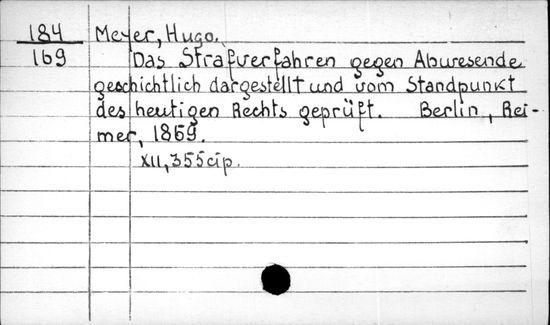 184 Meyer, Hugo.
169 Das Strafverfahren gegen Abwesende
geschichtlich dargestellt und vom Standpunkt
des heutigen Rechts geprüft. Berlin, Rei-
mer, 1869.
XII, 355 cip.